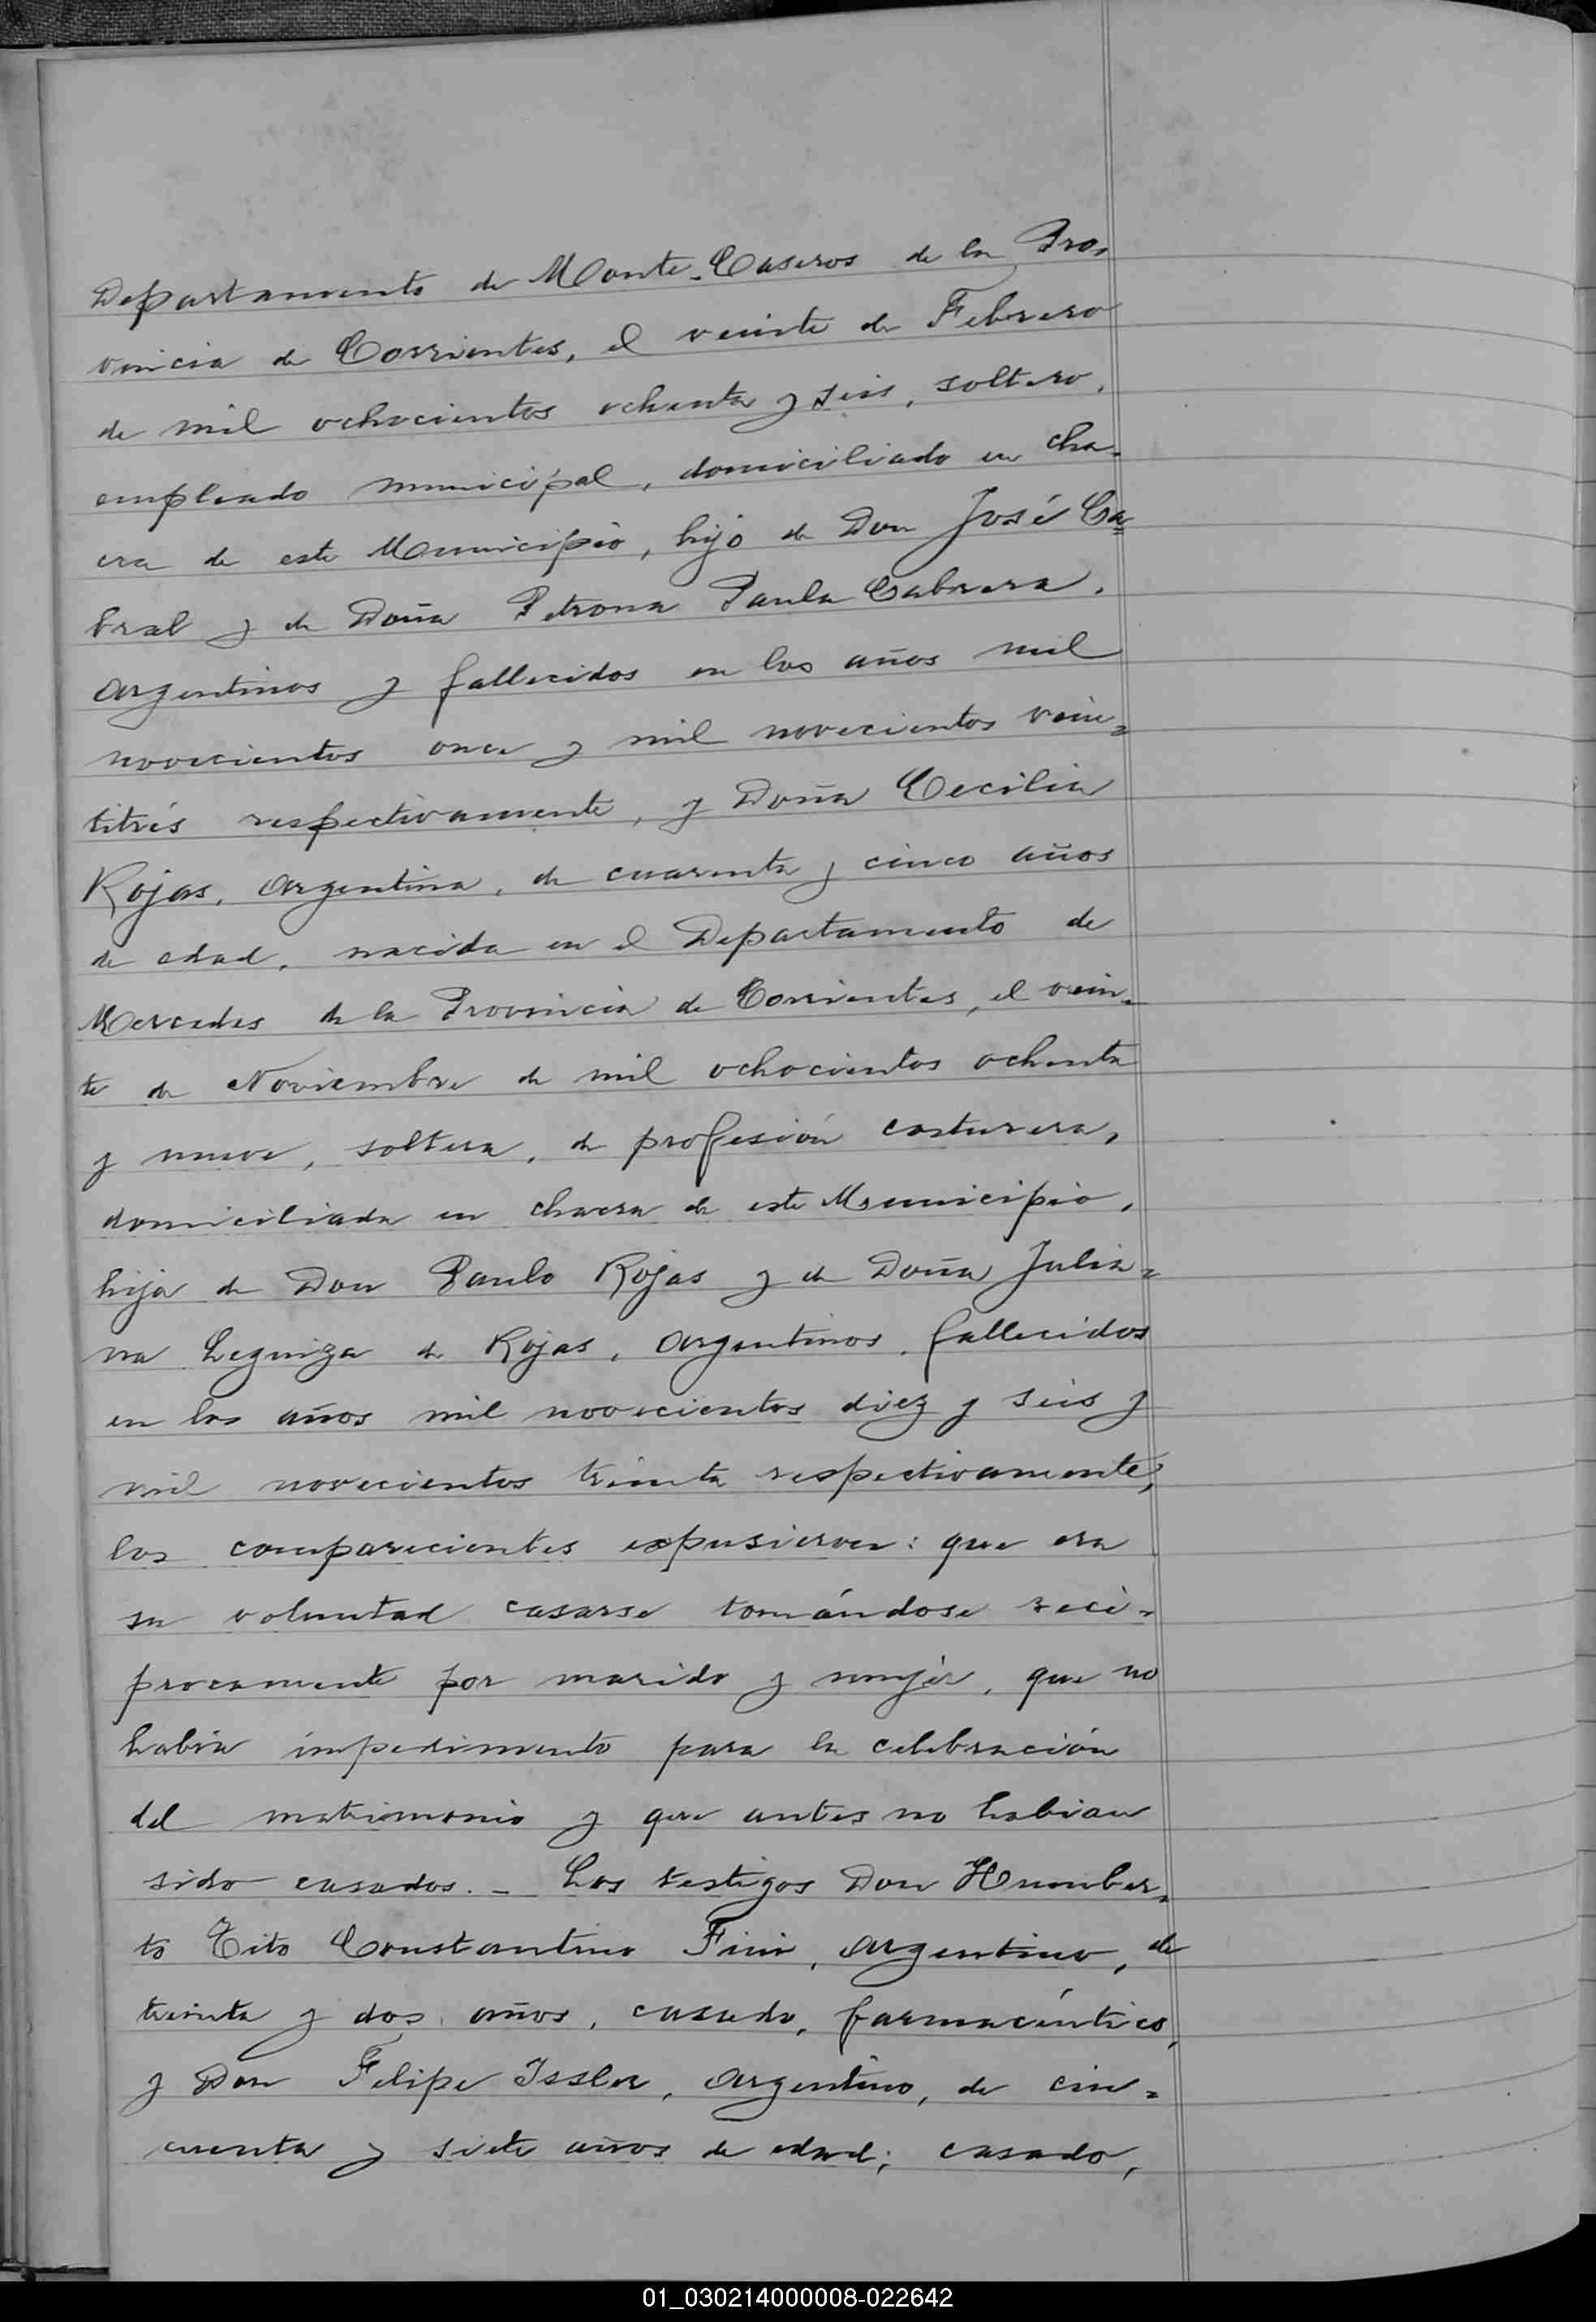 Departamento de Monte-Caseros de la Pro-
vincia de Corrientes, el veinte de Febrero
de mil ochocientos ochenta y seis, soltero,
empleado municipal, domiciliado en cha-
cra de este Municipio, hijo de Don José Ca=
bral y de Doña Petrona Paula Cabrera,
argentinos y fallecidos en los años mil
novecientos once y mil novecientos vein=
titrés respectivamente, y Doña Cecilia
Rojas, argentina, de cuarenta y cinco años
de edad, nacida en el Departamento de
Mercedes de la Provincia de Corrientes, el vein-
te de Noviembre de mil ochocientos ochenta
y nueve, soltera, de profesión costurera,
domiciliada en chacra de este Municipio,
hija de Don Paulo Rojas y de Doña Julia=
na Leguiza de Rojas, argentinos, fallecidos
en los años mil novecientos diez y seis y
mil novecientos treinta respectivamente,
los comparecientes expusieron: que era
su voluntad casarse tomándose reci-
procamente por marido y mujer, que no
había impedimento para la celebración
del matrimonio y que antes no habian
sido casados. - Los testigos Don Humber-
to Tito Constantino Fini, argentino, de
treinta y dos años, casado, farmacéutico,
y Don Felipe Issler, argentino, de cin=
cuenta y siete años de edad; casado,
01_030214000008-022642